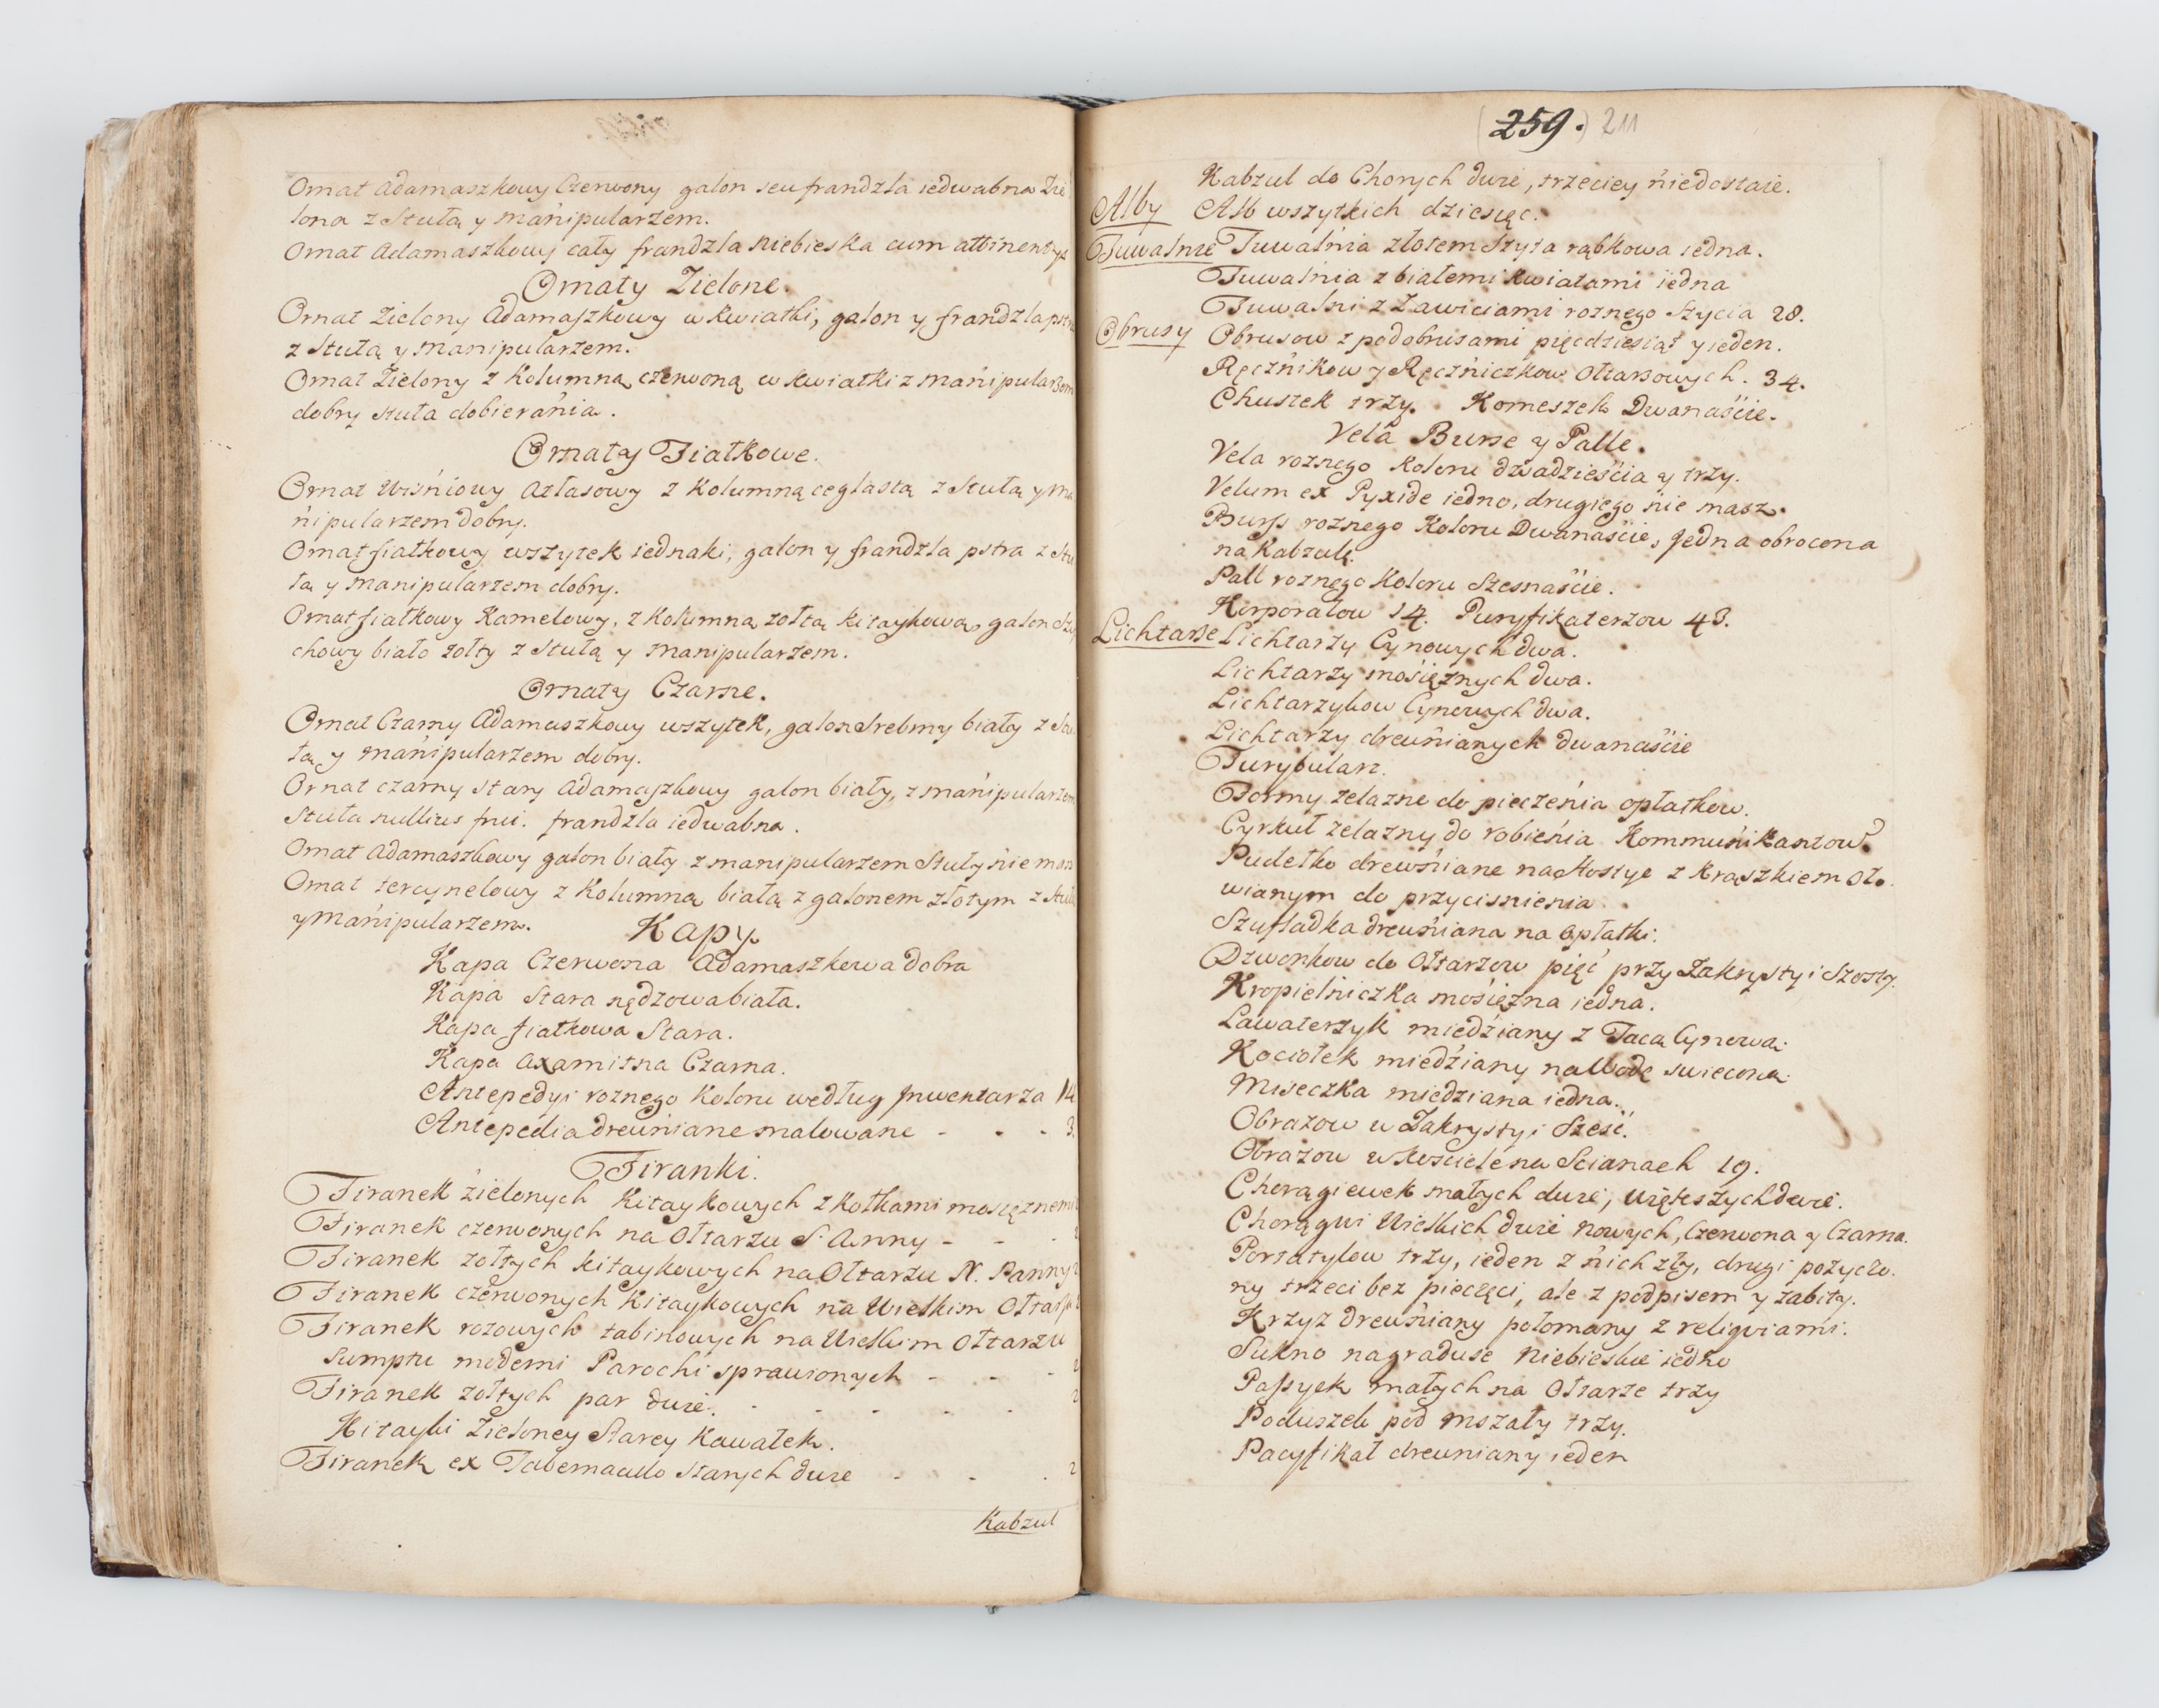 Ornat Adamaszkowy Czerwony galon seu frandzla iedwabna Zie
lona z Stułą y Manipularzem.
Ornat Adamaszkowy cały frandzla Niebieska cum attinentys
Ornaty Zielone.
Ornat Zielony Adamaszkowy w kwiatki, galon y frandzla pstra
z Stułą y Manipularzem.
Ornat Zielony z Kolumną czerwoną w kwiatki z Manipularzem
dobry Stuła dobierania.
Ornaty Fiałkowe.
Ornat Wiśniowy Atłasowy z Kolumną ceglastą z Stułą y Ma
nipularzem dobry.
Ornat fiałkowy wszytek iednaki, galon y frandzla pstra z Stu
łą y Manipularzem dobry.
Ornat fiałkowy Kamelowy, z Kolumną zołtą kitaykową, galon Szy
chowy biało zołty z Stułą y Manipularzem.
Ornaty Czarne.
Ornat Czarny Adamaszkowy wszytek, galon Srebrny biały z Stu
łą y Manipularzem dobry.
Ornat czarny Stary Adamaszkowy galon biały, z Manipularzem
Stuła nullius frui. frandzla iedwabna.
Ornat Adamaszkowy galon biały z manipularzem Stuły nie masz
Ornat tercynelowy z Kolumną białą z galonem złotym z Stułą
y Manipularzem.
Kapy
Kapa Czerwona Adamaszkowa dobra
Kapa Stara nędzowa biała.
Kapa fiałkowa Stara.
Kapa Axamitna Czarna.
Antepedyi roznego Koloru według Inwentarza 14
Antepedia drewniane malowane - - - 3.
Firanki.
Firanek zielonych Kitaykowych z Kołkami mosiężnemi
Firanek czerwonych na Ołtarzu S. Anny - - -
Firanek zołtych kitaykowych na Ołtarzu N. Panny
Firanek czerwonych Kitaykowych na Wielkim Ołtarzu
Firanek rozowych tabinowych na Wielkim Ołtarzu
Sumptu moderni Parochi sprawionych - - -
Firanek zołtych par dwie. - - - - - 2
Kitayki Zieloney Starey Kawałek.
Firanek ex Tabernaculo starych dwie - - - 2
Kabzul
(259.) 211
Kabzul do Chorych dwie, trzeciey niedostaie.
Alby Alb wszytkich dziesięc.
Tuwalnie Tuwalnia złotem Szyta rąbkowa iedna.
Tuwalnia z białemi kwiatami iedna
Tuwalni z Zawiciami roznego Szycia 28.
Obrusy Obrusow z podobrusami pięcdziesiąt y ieden.
Ręcznikow y Ręczniczkow Ołtarzowych. 34.
Chustek trzy. Komeszek Dwanaście.
Vela Burse y Palle.
Vela roznego Koloru dwadzieścia y trzy.
Velum ex Pyxide iedno, drugiego nie masz.
Burs roznego Koloru Dwanaście, Jedna obrocona
na Kabzulę.
Pall roznego Koloru Szesnaście.
Korporałow 14. Puryfikaterzow 43.
Lichtarze Lichtarzy Cynowych dwa.
Lichtarzy mosiężnych dwa.
Lichtarzykow Cynowych dwa.
Lichtarzy drewnianych dwanaście
Turybularz.
Formy zelazne do pieczenia opłatkow.
Cyrkuł zelazny do robienia Kommunikantow.
Pudełko drewniane na Hostye z Krązkiem oło
wianym do przycisnienia.
Szufladka drewniana na Opłatki.
Dzwonkow do Ołtarzow pięć przy Zakrystyi Szosty.
Kropielniczka mosiężna iedna.
Lawaterzyk miedziany z Tacą Cynową.
Kociołek miedziany na Wodę swieconą.
Miseczka miedziana iedna.
Obrazow w Zakrystyi Sześć.
Obrazow w Kościele na Scianach 19.
Chorągiewek małych dwie, większych dwie.
Chorągwi Wielkich dwie Nowych, Czerwona y Czarna.
Portatylow trzy, ieden z nich zły, drugi pozyczo.
ny trzeci bez pieczęci, ale z podpisem y zabity.
Krzyz drewniany połomany z religwiami.
Sukno na graduse Niebieskie iedno
Passyek małych na Ołtarze trzy
Poduszek pod mszały trzy.
Pacyfikał drewniany ieden